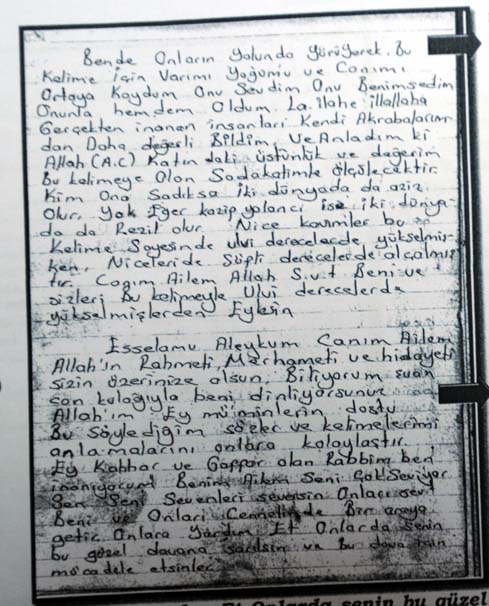 Bende Onların Yolunda Yürüyerek. Bu
Kelime için Varımı Yoğumu ve Canımı
Ortaya Koydum Onu Sevdim Onu Benimsedim
Onunla hemdem Oldum. La ilahe illallaha
Gerçekten inanan insanları Kendi Akrabalarım
dan Daha değerli Bildim. Ve Anladım ki
Allah (A.C) Katındaki üstünlük ve değerim
Bu kelimeye Olan Sadakatimle ölçülecektir.
Kim Ona Sadıksa iki dünyada da aziz
Olur. Yok Eğer kazip yalancı ise iki dünya-
da da Rezil olur. Nice kavimler bu
Kelime Sayesinde ulvi derecelerde yükselmiş-
ken, Niceleride Süfli derecelerde alçalmış
tır. Canım Ailem Allah S.v.t Beni ve
sizleri Bu kelimeyle Ulvi derecelerde
yükselmişlerden Eylesin
Esselamu Aleykum Canım Ailem
Allah'ın Rahmeti, Merhameti ve hidayeti
sizin üzerinize olsun. Biliyorum şuan
can kulağıyla beni dinliyorsunuz
Allah'ım Ey mü'minlerin dostu
Bu Söylediğim sözler ve kelimelerimi
anlamalarını onlara kolaylaştır.
Ey Kahhar ve Gaffar olan Rabbim ben
inanıyorum Benim Ailem Seni Çok Seviyor
Sen Seni Sevenleri seversin Onları sev
Beni ve Onları Cennetinde Bir araya
getir Onlara Yardım Et Onlarda Senin
bu güzel davana sarılsın ve bu dava için
mücadele etsinler
Et Onlarda senin bu güzel